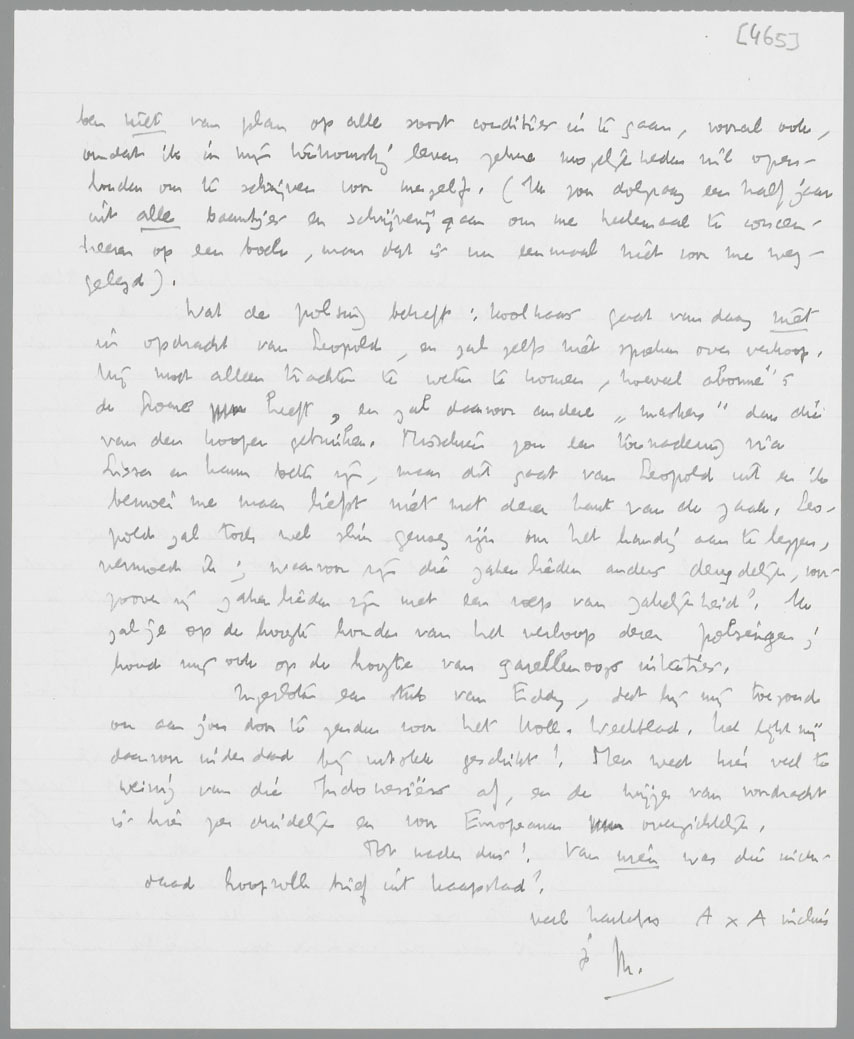 [465]
ben niet van plan op alle soort condities in te gaan, vooral ook,
omdat ik in mijn toekomstig leven zekere mogelijkheden wil open-
houden om te schrijven voor mezelf. (Ik zou dolgraag een half jaar
uit alle baantjes en schrijverij gaan om me helemaal te concen-
treeren op een boek, maar dat is nu eenmaal niet voor me weg-
gelegd).
Wat de polsing betreft: Koolhaas gaat vandaag niet
in opdracht van Leopold, en zal zelfs niet spreken over verkoop.
Hij moet alleen trachten te weten te komen, hoeveel abonné's
de Groene heeft, en zal daarvoor andere „maskers" dan die
van den kooper gebruiken. Misschien zou een toenadering via
en beter zijn, maar dit gaat van Leopold uit en ik
bemoei me maar liefst niet met deze kant van de zaak. Leo-
pold zal toch wel slim genoeg zijn om het handig aan te leggen,
vermoed ik; waarvoor zijn die zakenlieden anders degelijk, voor-
zoover zij zakenlieden zijn met een roep van zakelijkheid? Ik
zal je op de hoogte houden van het verloop dezer polsingen;
houd mij ook op de hoogte van intenties.
Ingesloten een stuk van Eddy, dat hij mij toezond
om aan jou door te zenden voor het Holl. Weekblad. Het lijkt mij
daarvoor inderdaad bij uitstek geschikt! Men weet hier veel te
weinig van die Indonesiërs af, en de wijze van voordracht
is hier zeer duidelijk en voor Europeanen overzichtelijk.
Tot nader dus! Van wien was die inder-
daad hoopvolle brief uit Kaapstad?
veel hartelijks A x A incluis
je M.